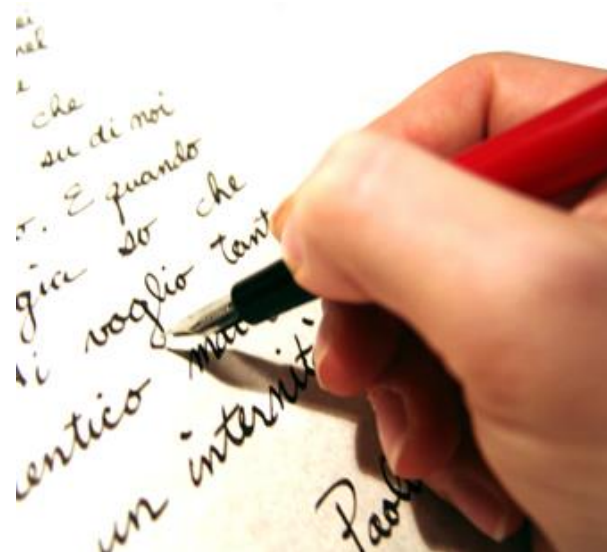 che
su di noi
o. E quando
so che
voglio tant
entico
un internit
Paol